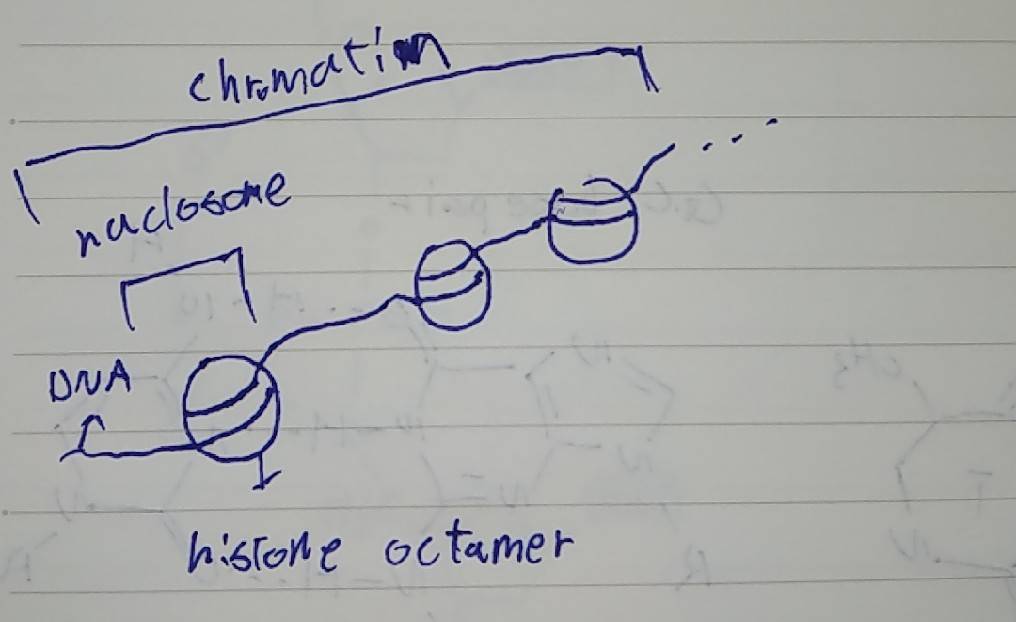 chromatin
naclosome
DNA
histone octamer